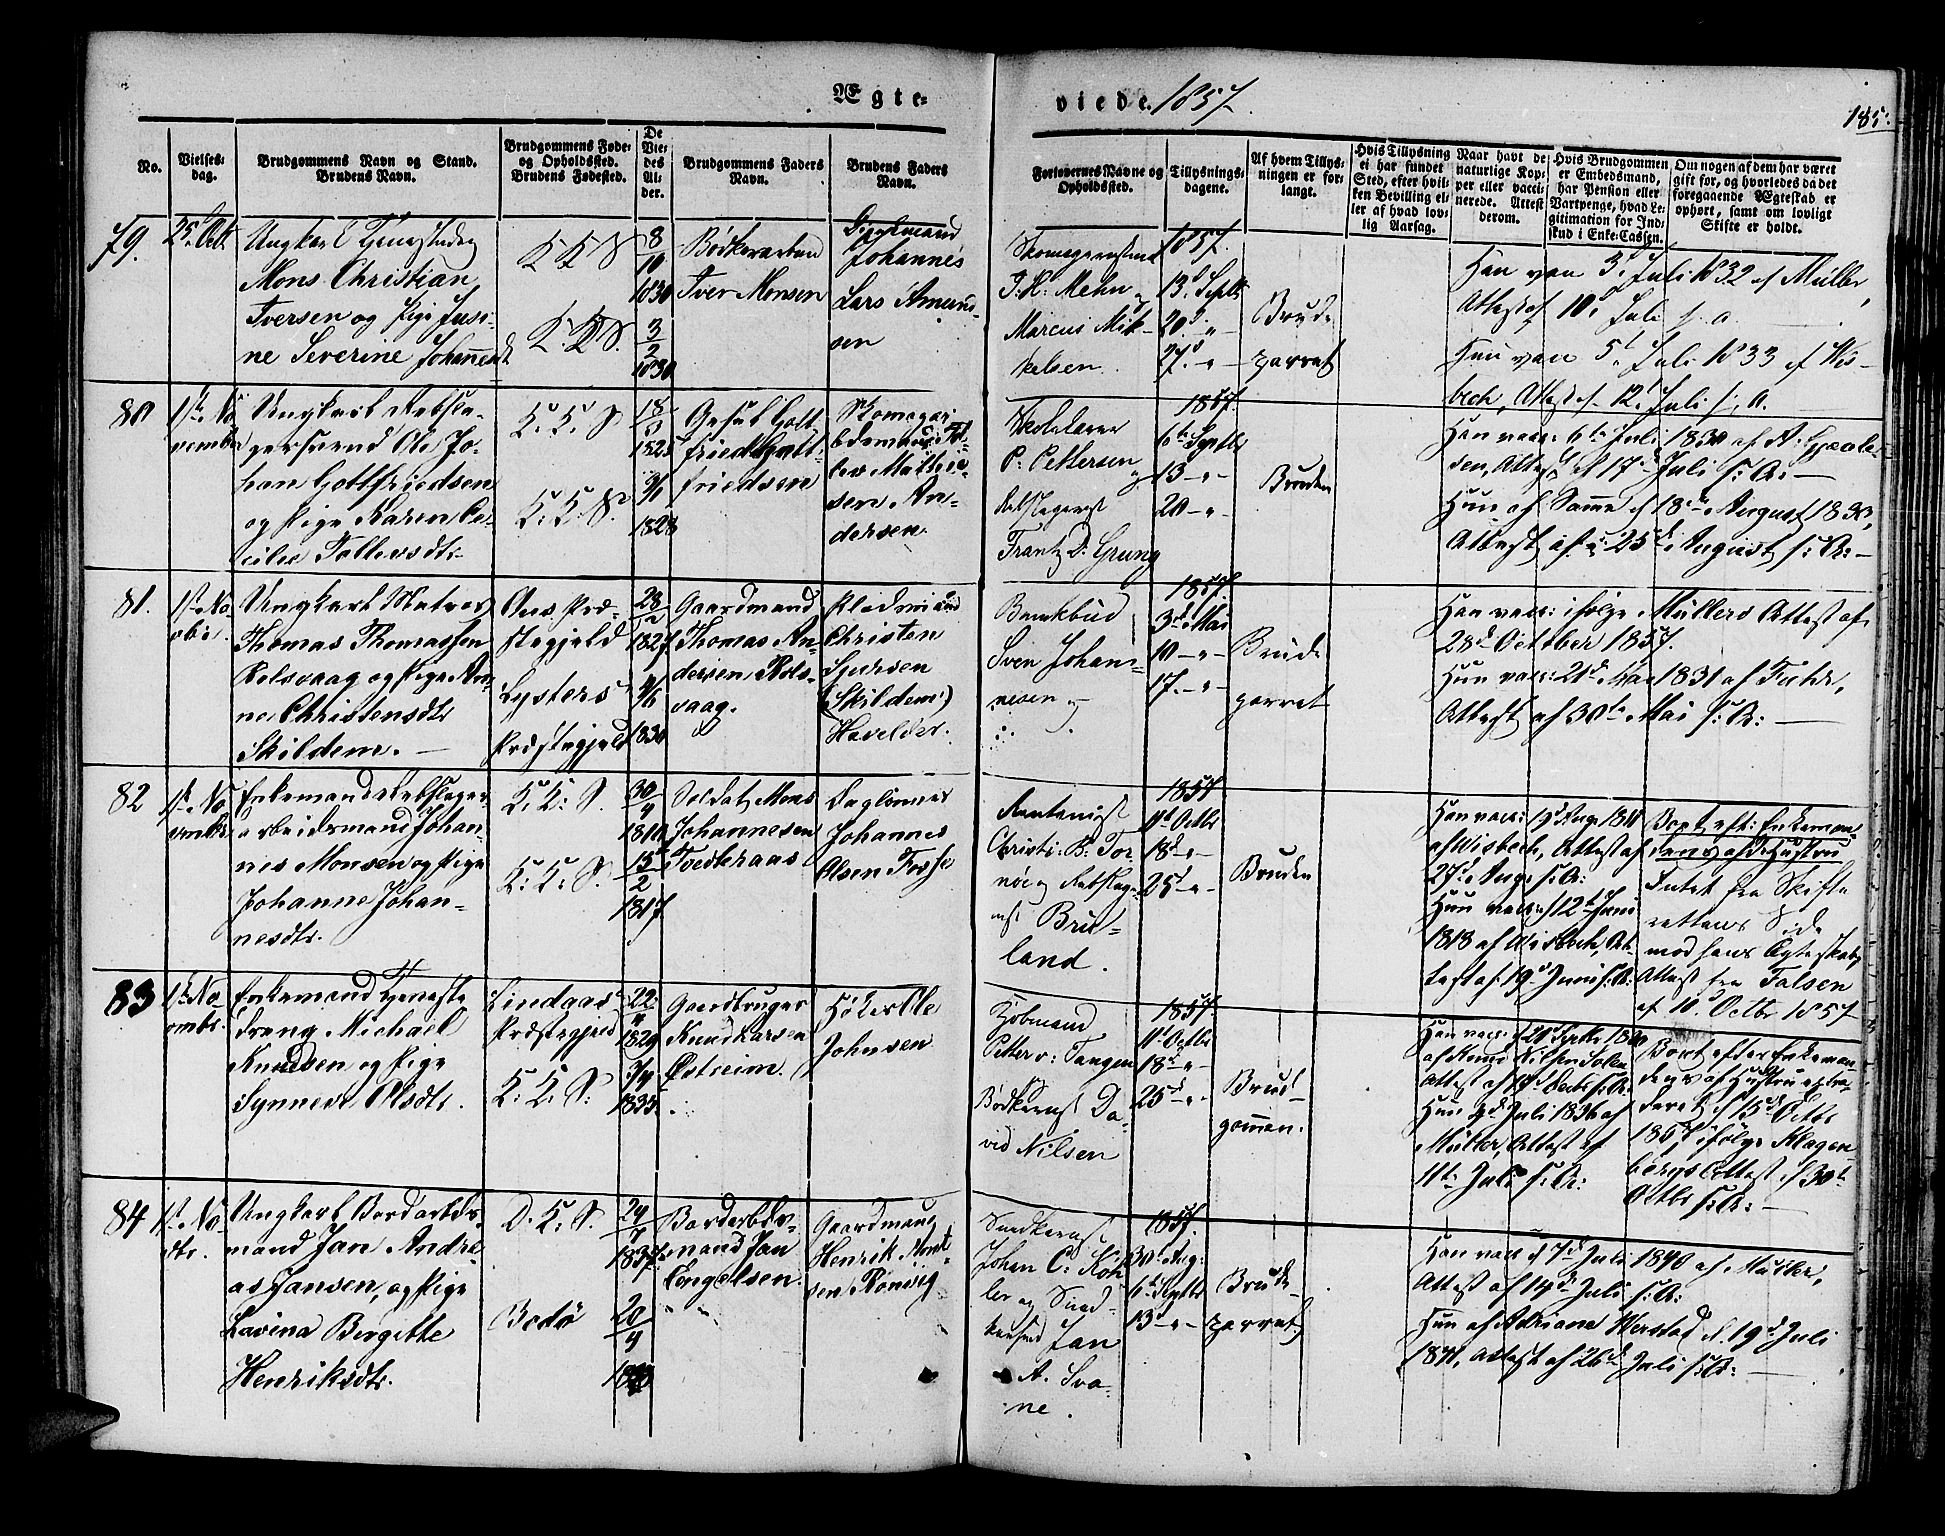 Ægte=
viede. 1857.
185.
No.
Vielses=
dag.
Brudgommens Navn og Stand.
Brudens Navn.
Brudgommens Føde=
og Opholdssted.
Brudens Fødested.
De
Vie=
des
Al=
der.
Brudgommens Faders
Navn.
Brudens Faders
Navn.
Forlovernes Navne og
Opholdssted.
Tillysnings=
dagene.
Af hvem Tillys=
ningen er for=
langt.
Hvis Tillysning
ei har fundet
Sted, efter hvil=
ken Bevilling el=
ler af hvad lov=
lig Aarsag.
Naar havt de
naturlige Kop=
per eller vacci=
nerede. Attest
derom.
Hvis Brudgommen
er Embedsmand,
har Pension eller
Vartpenge, hvad Le=
gitimation for Ind=
skud i Enke=Cassen.
Om nogen af dem har været
gift før, og hvorledes da det
foregaaende Ægteskab er
ophørt, samt om lovligt
Skifte er holdt.
79.
25d Oct.
Ungkarl
Mons Christian
Iversen og Pige Jusi=
ne Severine Johannesdt
K K S
K. K S.
8
10
1830
3
2
1830
Bødkersvend
Iver Monsen
Johannes
Lars Amun=
sen
Skomagermest
J. H. Mehn
Marcus Mik=
kelsen.
1857.
13d Septb
20d "
27. "
Brude
parret
Han vac 3d Juli 1832 af Müller,
Attest af 10d Juli s. a.
Hun vac 5t Juli 1833 af Wis=
bech, Attest 12. Juli s. A.
80
1ste No
vember
Ungkarl Rebsla=
gersvend Ole Jo=
han Gottfriedsen
og Pige Karen Ce=
cilie Tollevsdtr
K. K. S
K. K. S.
18
1825
9/1
1828
Gesel Gott=
fried Gott=
friedsen
Skomager
Mathie=
sen An=
dersen.
Skolelærer
P. Pettersen
Rebslagermst
Frantz D. Grung
1857.
6te Septb
13 "
20 "
Bruden
Han vacc: 6te Juli 1830 af A: Gjæsle=
sen, Attest af 17d Juli s: A:
Hun af Samme d 18de August 1830,
Attest af 25d August s: A:
81.
1ste No
vbr.
Ungkarl Matros
Thomas Thomassen
Rolsvaag og Pige An=
ne Christensdtr
Skildem.
Ous Præ=
stegjeld
Lysters
Præstegjeld
28
1827
4/6
1830
Gaardmand
Thomas An=
dersen Rols=
vaag.
Christen
Sjursen
(Skildem)
Havelder.
Bankbud
Sven Johan=
nesen
1857.
3d Mai
10 "
17. "
Brude
parret
Han vacc: ifølge Müllers Attest af
28d October 1857.
Hun vacc: 21d Mai 1831 af Fuhr,
Attest af 30te Mai s: A:
82
1ste No
vember
Enkemand Rebslager
arbeidsmand Johan=
nes Monsen og Pige
Johanne Johan=
nesdtr.
K. K: S.
K. K: S.
30
4
1810
15
2
1817
Soldat Mons
Johannesen
Tvedteraas
Daglønner
Johannes
Olsen Fosse
Christi: B. Tor=
nøe og Rebslage=
mst Bru=
land.
1857
11d Octbr
18d "
25d "
Bruden
Han vacc: 19d Aug 1811
af Wisbech, Attest af
27d Aug. s: A:
Hun vacc: 12d Juni
1818 af Wisbech, At=
test af 19d Juni s: A:
Bort eft: Enkeman=
den v afd: Hustru
Intet fra Skifte
rettens Side
mod hans Egteskab,
Attest fra Falsen
af 10d Octbr 1857
83
1ste No=
vembr.
Enkemand Tjeneste
dreng Michael
Knudsen og Pige
Synneve Olsdtr.
Lindaas
Præstegjeld
K: K: S:
22
11
1829
3/4
1835
Gaardbruger
Knud Larsen
Østreim.
Høker Ole
Johnsen
Kjøbmand
Petter v: Tangen
Bødkermst Da=
vid Nilsen
1857
11d Octbr
18d "
25d "
Brud=
gommen.
Hun 2d Juli 1836 af
Müller, Attest af
11te Juli s: A:
Bort efter Enkeman=
1857 ifølge Klagen=
bergs Attest af 30te
Octbr s: A:
84
1ste No
vbr.
Ungkarl Bordarbds=
mand Jan Andre=
as Jansen, og Pige
Lavina Bergitte
Henriksdtr.
D. K. S.
Bodø
29
7
1837
20
4
Bordarbds=
mand Jan
Engelsen.
Gaardmand
Henrik Mort=
sen Rønvig
Snedkermst
Johan C: Køh=
ler og Sned=
kersvd Jan
A. Sva=
ne.
1857.
30te Aug:
6te Septbr
13d "
Brude=
parret
Han vacc d 7d Juli 1840 af Müller,
Attest af 14d Juli s: A:
Hun af Adriane Werstad d. 19d Juli
1841, Attest af 26d Juli s: A: